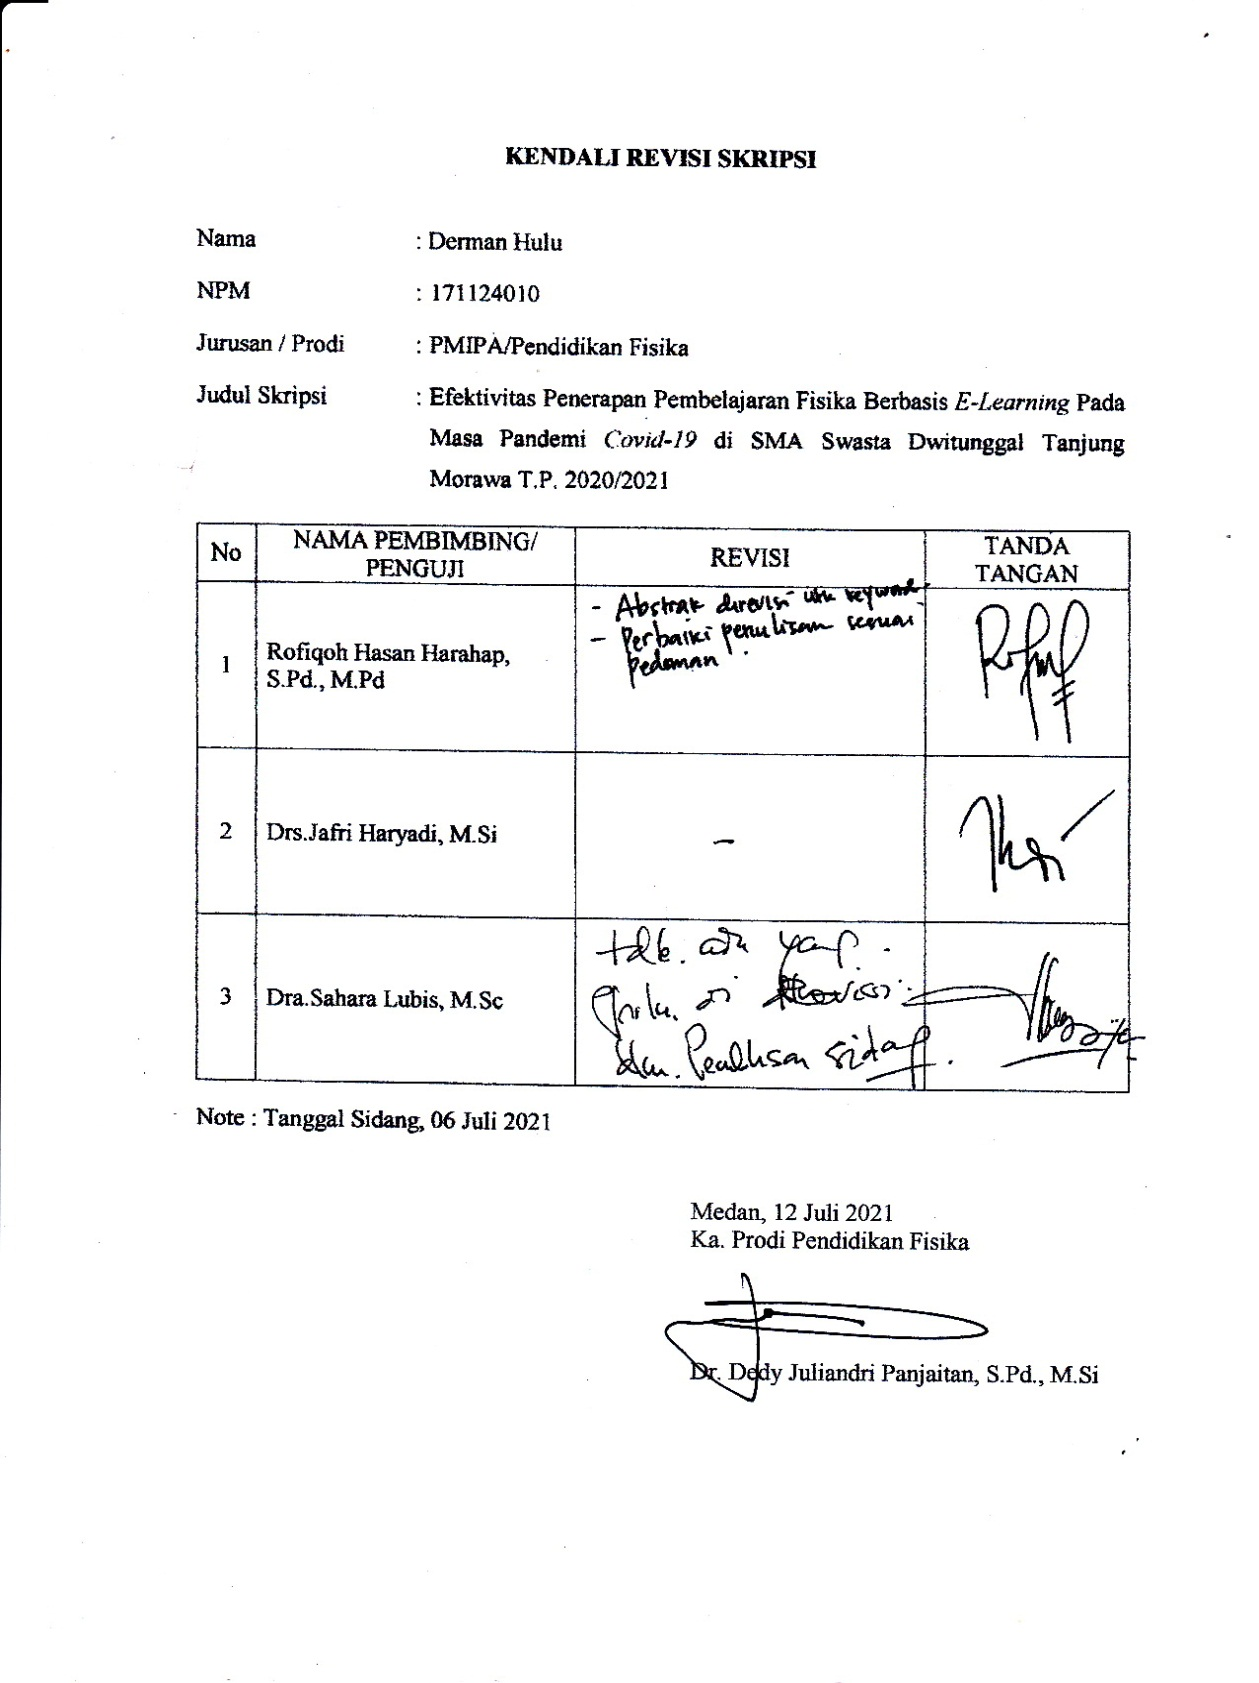 KENDALI REVISI SKRIPSI
Nama : Derman Hulu
NPM : 171124010
Jurusan / Prodi : PMIPA/Pendidikan Fisika
Judul Skripsi : Efektivitas Penerapan Pembelajaran Fisika Berbasis E-Learning Pada
Masa Pandemi Covid-19 di SMA Swasta Dwitunggal Tanjung
Morawa T.P. 2020/2021
No NAMA PEMBIMBING/ PENGUJI REVISI TANDA TANGAN
1 Rofiqoh Hasan Harahap, S.Pd., M.Pd
- Abstrak direvisi utk keyword
- Perbaiki penulisan sesuai
pedoman
2 Drs.Jafri Haryadi, M.Si -
3 Dra.Sahara Lubis, M.Sc
tdk. ada yang
di revisi
sidang.
Note : Tanggal Sidang, 06 Juli 2021
Medan, 12 Juli 2021
Ka. Prodi Pendidikan Fisika
Dr. Dedy Juliandri Panjaitan, S.Pd., M.Si